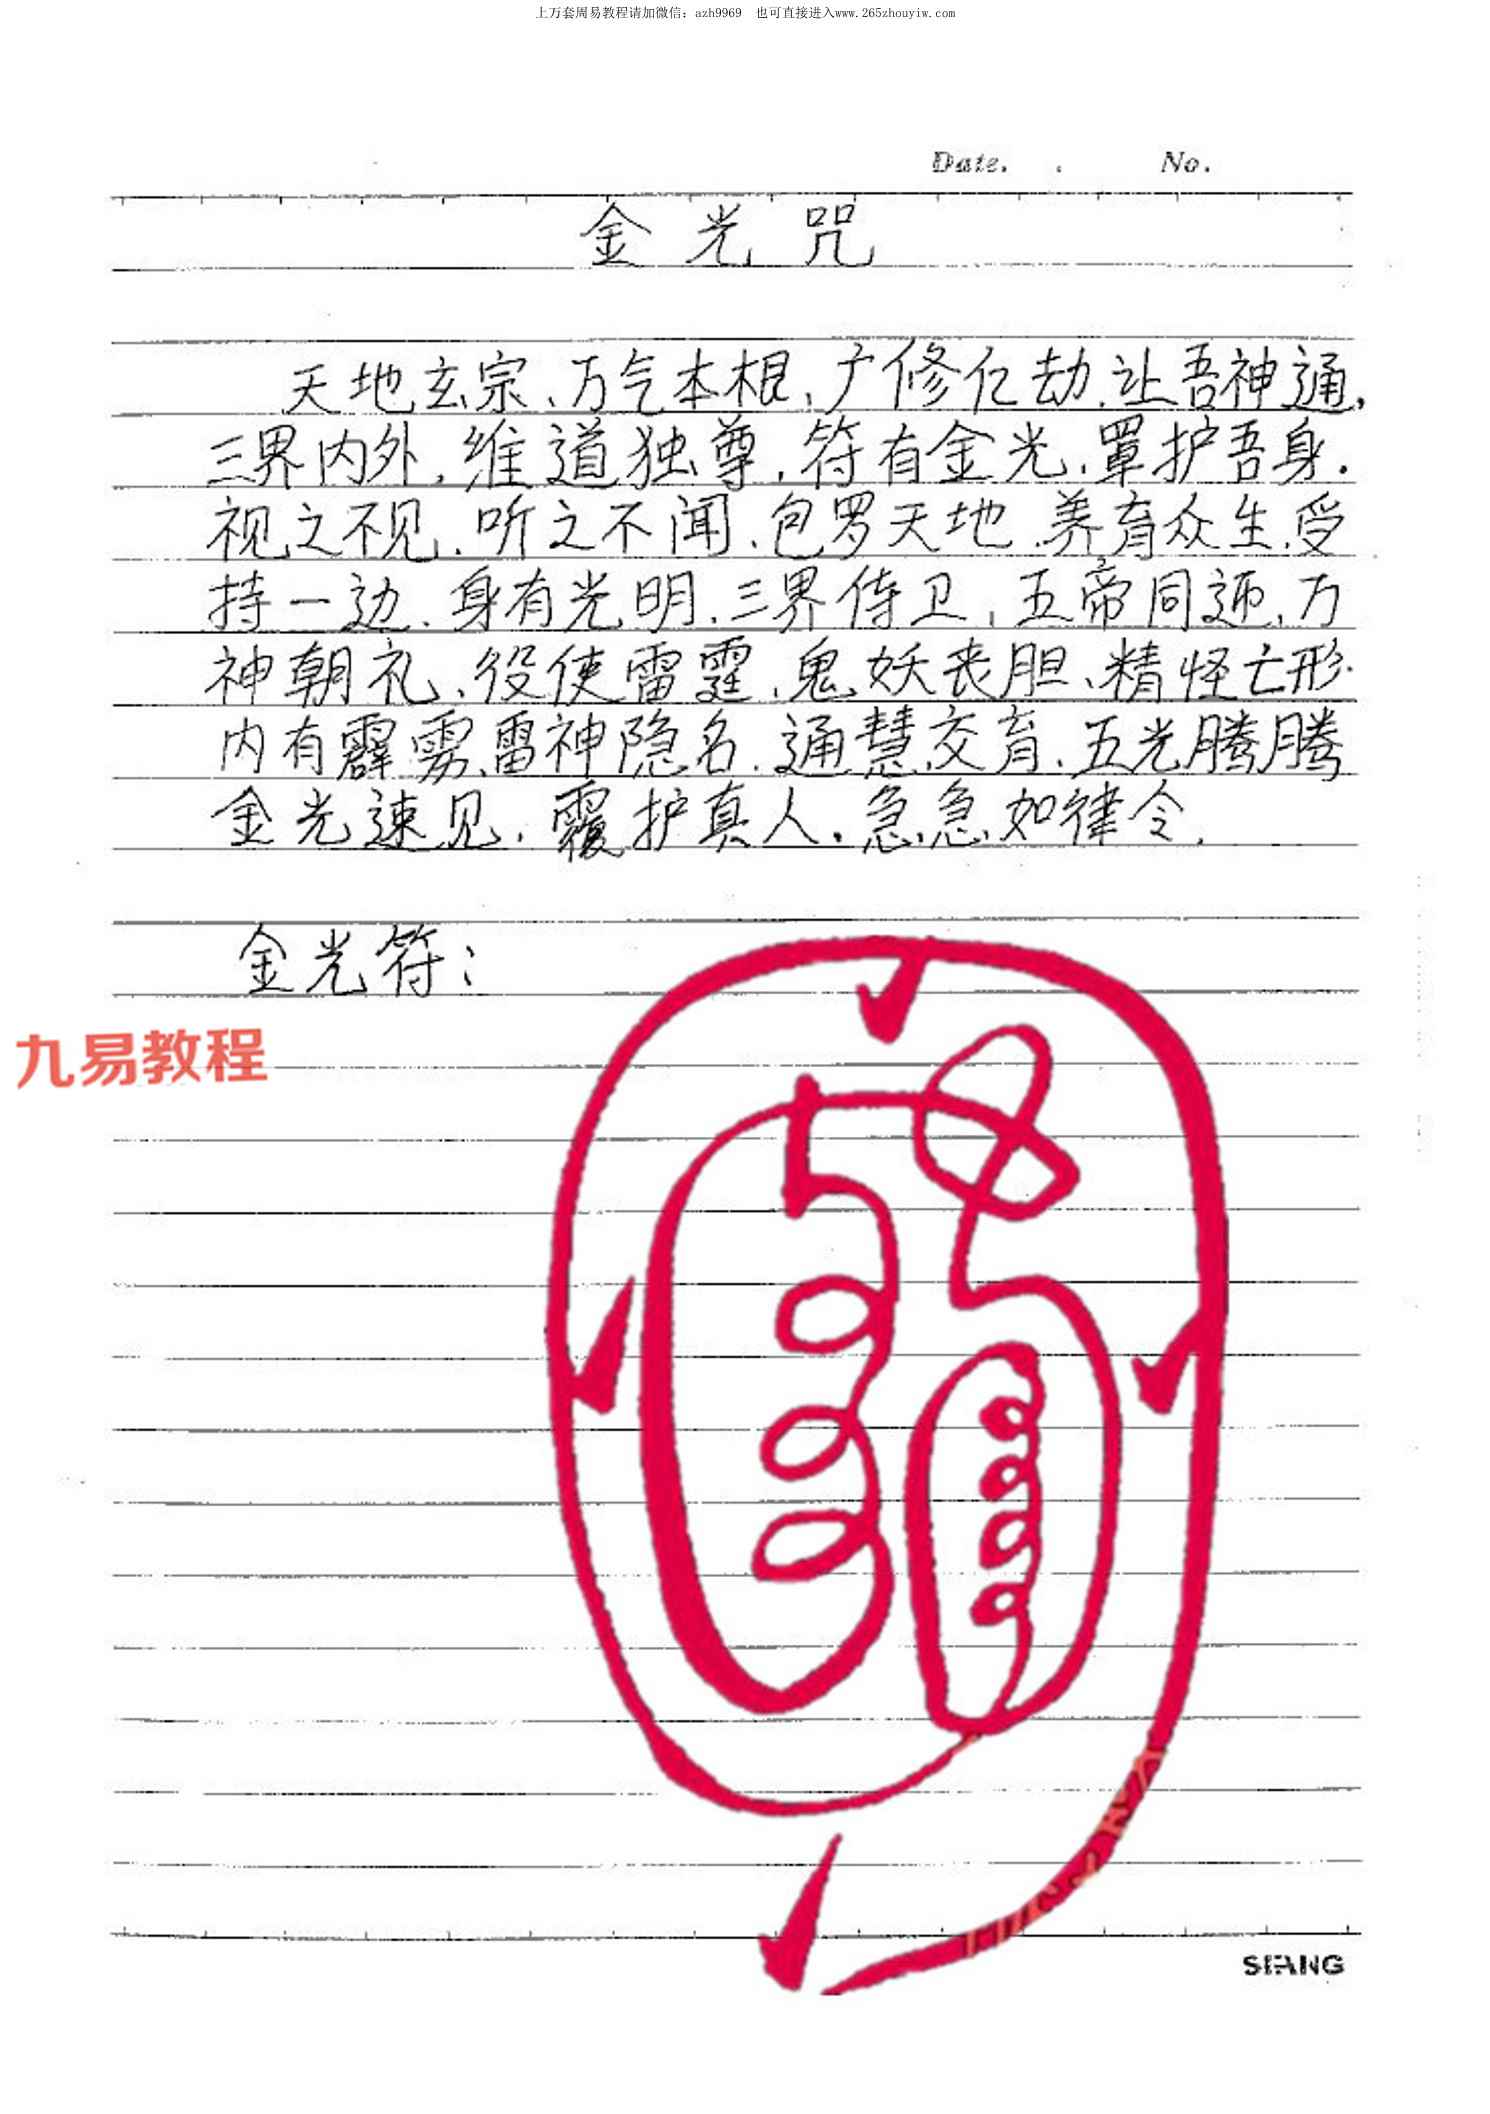 上万套周易教程请加微信：azh9969 也可直接进入www.265zhouyiw.com
Date. . No.
金光咒
天地玄宗、万气本根、广修亿劫、让吾神通，
三界内外，维道独尊，符有金光、罩护吾身．
视之不见、听之不闻、包罗天地、养育众生、受
持一边、身有光明、三界侍卫，五帝同逥、万
神朝礼、役使雷霆、鬼妖丧胆、精怪亡形．
内有霹雳、雷神隐名．通慧交育、五光腾腾
金光速见．覆护真人．急急如律令．
金光符：
九易教程
SIANG